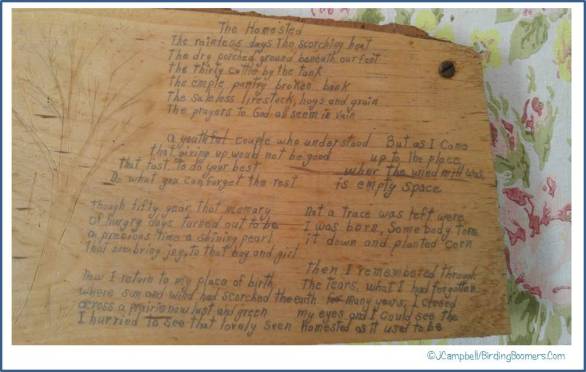 The Homested
The rainless days The scorching heat
The dry porched ground beneath our feet
The thirty cattle by the tank
The emple pantry broken bank
The saleless livestock, hogs and grain
The prayers to God all seem in vain
a youthful couple who understood
that giving up would not be good
that fast. To do your best
Do what you can forget the rest
But as I come
up to the place
wher the wind mill was,
is empty space
Though fifty year that memary
Of hungry days turned out to be
a precious time a shining pearl
That bring joy, to that boy and girl
Not a trace was left were
I was born, Somebody Tore
it down and planted corn
Now I return to my place of birth
where sun and wind had scorched the earth
across a prairie now lush and green
I hurried to see that lovely seen
Then I remembered through
The tears, what I had forgotten
for many years, I closed
my eyes and I could see the
Homested as it used to be
©JCampbell/BirdingBoomers.Com